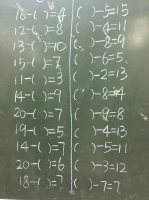 16-( )=4 ( )-5=15
12-( )=8 ( )-4=11
13-( )=10 ( )-8=9
15-( )=7 ( )-6=5
11-( )=3 ( )-2=13
14-( )=9 ( )-8=4
20-( )=7 ( )-9=8
19-( )=5 ( )-4=13
14-( )=7 ( )-5=11
20-( )=6 ( )-3=12
18-( )=7 ( )-7=7